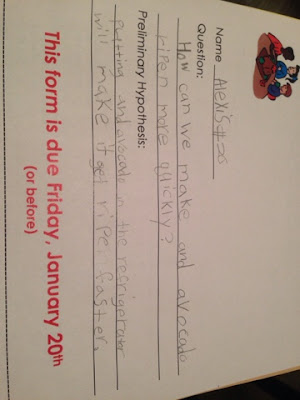 Name Alexis #25
Question:
How can we make and avocado
ripen more quickly?
Preliminary Hypothesis:
Putting and avocado in the refrigerator
will make it get ripe faster.
This form is due Friday, January 20th
(or before)